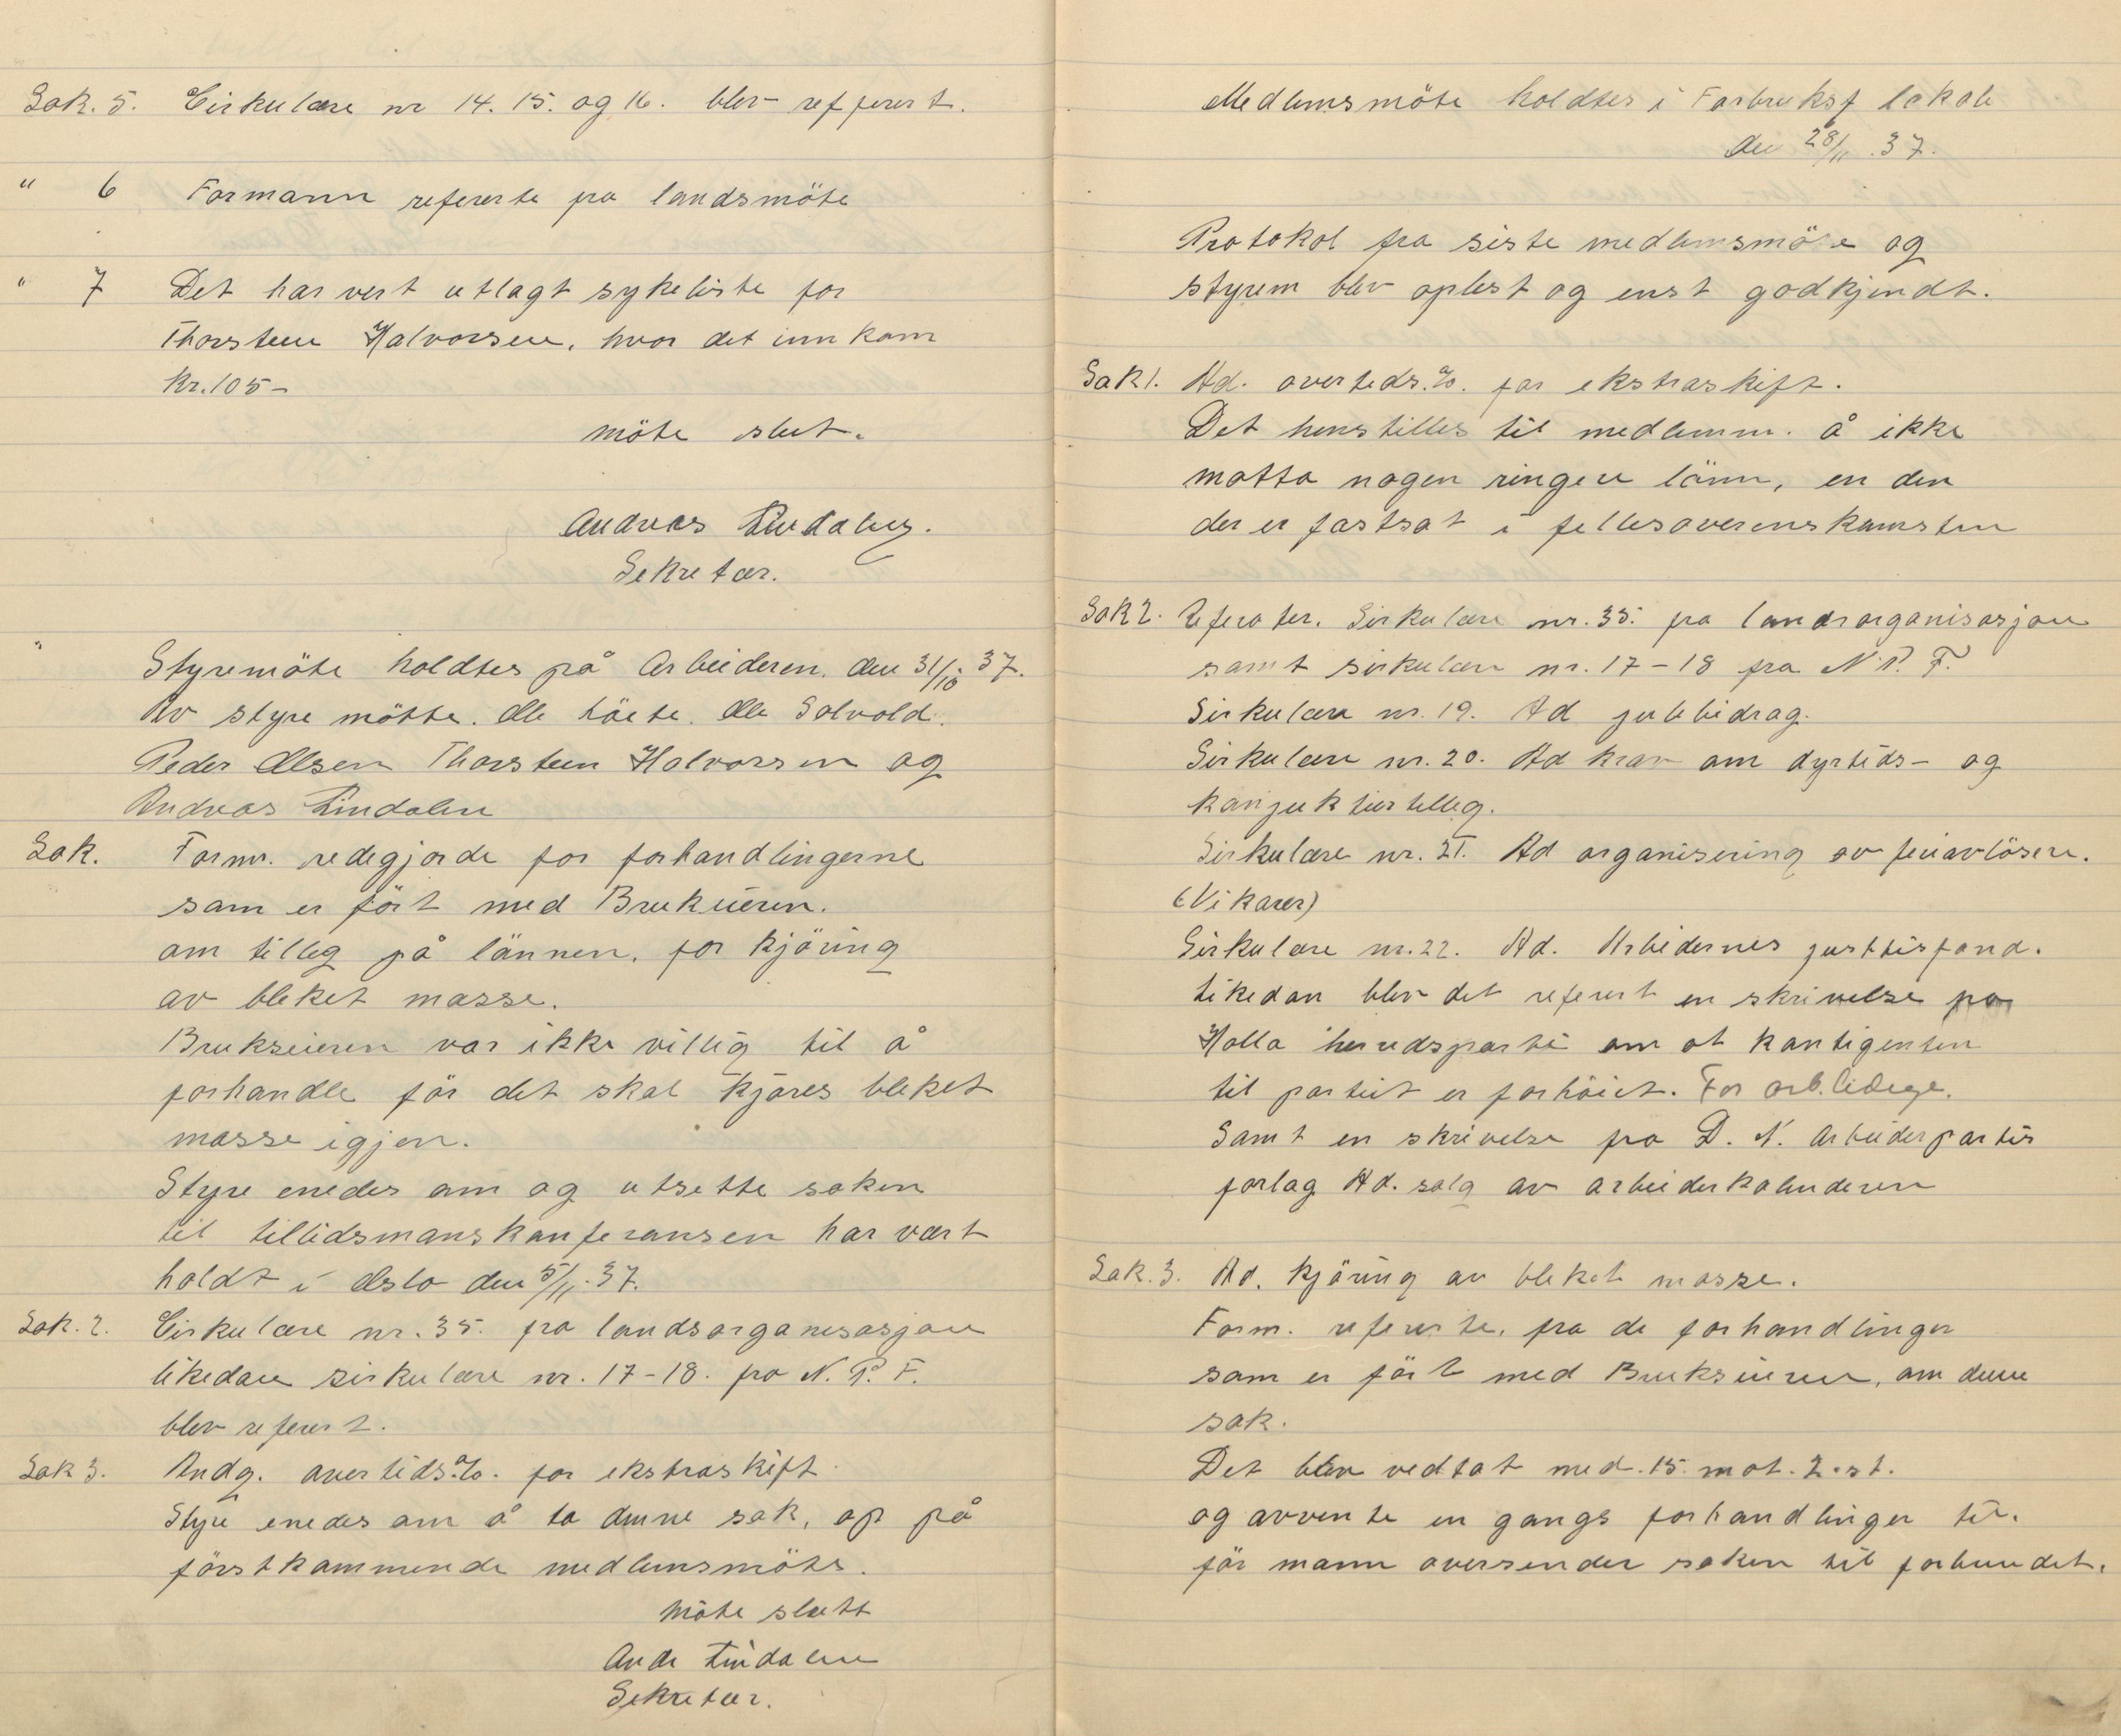 Sak. 5. Cirkulære nr 14. 15. og 16. blev refferert.
" 6 Formann refererte fra landsmöte
" 7 Det har vert utlagt sykeliste for
Thorsteen Halvorsen, hvor det inn kom
Kr. 105-
möte slut.
Andreas Lindalen.
Sekretær.
Styremöte holdtes på Arbeideren. den 31/10 37.
Av styre mötte. Ole Ole Solvold.
Peder Olsen Thorsteen Halvorsen og
Andreas Lindalen
Sak. Form. redegjorde for forhandlingerne
som er fört med Brukeieren.
om tilleg på lönnen, for kjöring
av bleket masse.
Brukseieren var ikke villig til å
forhandle för det skal kjöres bleket
masse igjen.
Styre enedes om og utsette saken
til tillidsmanskonferansen har vært
holdt i Oslo den 5/11. 37.
Sak. 2. Cirkulære nr. 35. fra landsorganisasjon
likedan sirkulære nr. 17-18. fra N. P. F.
blev referert.
Sak 3. Andg. overtids.%. for ekstraskift
Styre enedes om å ta denne sak, op på
förstkommende medlemsmöte.
Möte slutt
Andr Lindalen
Sekretær.
Medlemsmöte holdtes i Forbruksf lokale
den 28/11. 37.
Protokol fra siste medlemsmöte og
styrem blev oplest og enst godkjendt.
Sak 1. Ad. overteds.%. for ekstraskift.
Det henstilles til medlemm. å ikke
motta nogen ringere lönn, en den
der er fastsat i fellesoverenskomsten
Sak 2. Referater. Sirkulære nr. 35. fra landsorganisasjon
samt sirkulære nr. 17-18 fra N. P. F.
Sirkulære nr. 19. Ad julebidrag.
Sirkulære nr. 20. Ad krav om dyrtids- og
konjukturtilleg.
Sirkulære nr. 21. Ad organisering av feriavlösere.
(Vikarer)
Sirkulære nr. 22. Ad. Arbeidernes justisfond.
likedan blev det referert en skrivelse fra
Holla herredsparti om at kontigenten
til partiet er forhöiet. For arb.ledige.
Samt en skrivelse fra D. N. Arbeiderpartis
forlag Ad. salg av arbeiderkalenderen
Sak. 3. Ad. kjöring av bleket masse.
Form. refererte, fra de forhandlinger
som er fört med Brukseieren, om denne
sak.
Det blev vedtat med. 15. mot. 2. st.
og avvente en gangs forhandlinger til.
för mann oversender saken til forbundet.